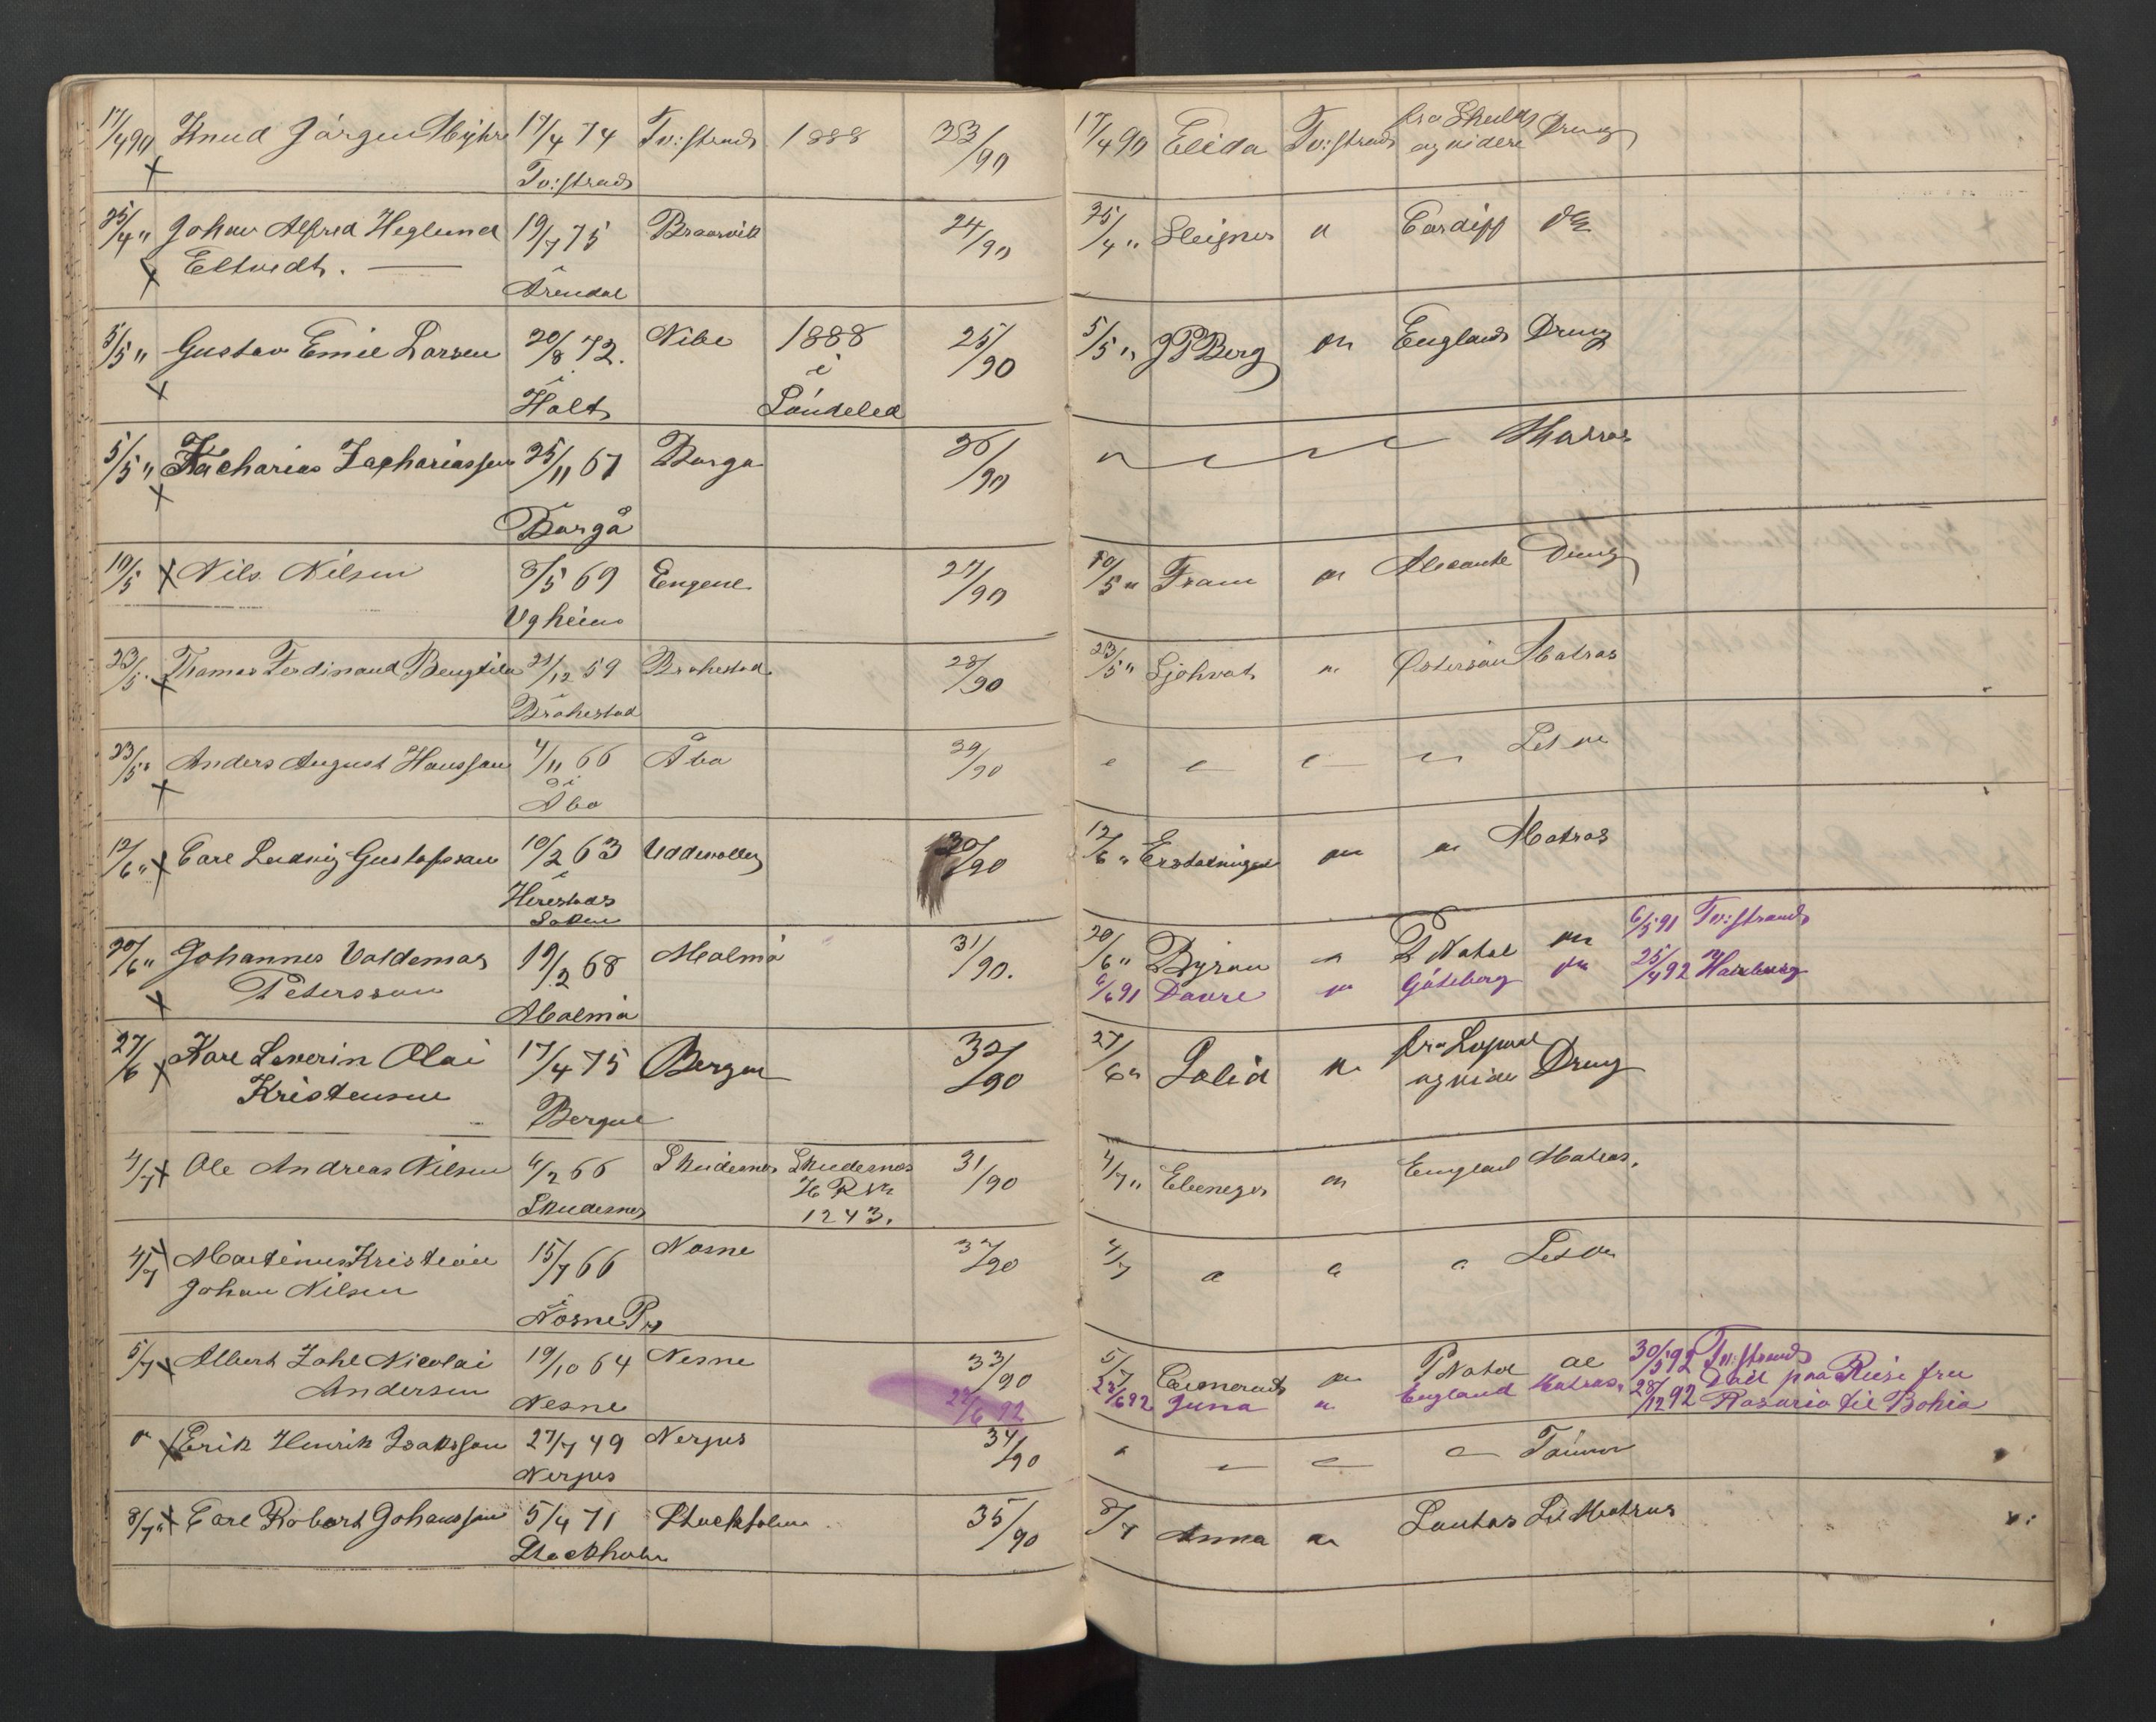 17/4 90 Knud Jörgen Myhre 17/4 74 Tv:strand 1888 23/90
Tv:strand
25/4 " Johan Alfred Heglund 19/7 75 Braavik 24/90
Eltvedt. —
i Arendal
5/5 " Gustav Emil Larsen 20/8 72. Nibe 1888 25/90
i Holt i Söndeled
5/5 " Zacharias Zachariassen 25/11 67 Borga 26/90
i Borgå
10/5 Nils Nilsen 8/5 69 Engene 27/90
23/5 Thomas Ferdinand 21/12 59 Brahestad 28/90
i Brahestad
23/5 " Anders August Hansson 4/11 66 Åbo 29/90
i Åbo
12/6 " Carl Ludvig Gustafsson 10/2 63 Uddevalla 30/90
i Herestads
Soken
20/6 " Johannes Valdemar 19/2 68 Malmö 31/90.
Petersson
Malmö
27/6 Karl Severin Olai 17/4 75 Bergen 32/90
Kristensen
Bergen
4/7 Ole Andreas Nilsen 6/2 66 Skudesnes Skudesnes 31/90
Skudesnes 1243.
4/7 Martinus Kristian 15/7 66 Nesne 32/90
Johan Nilsen
i Nesne
5/7 Albert Zahl Nicolai 19/10 64 Nesne 33/90
Andersen
Nesne 22/6 92
" Erik Henrik Isaksson 27/7 49 Nerpes 34/90
Nerpes
8/7 " Carl Robert Johansson 5/4 71 Stockholm 35/90
Stockholm
17/4 90 Elida Tv:strand fra Shields Dreng
og videre
25/4 " Sleipner " Cardiff do
5/5 " J P Berg " England Dreng
" " " " Matros
10/5 " Fram " Dreng
23/5 " Sjohvat " Østersöen Matros
" " " " Let M
12/6 " Erstatningen " " Matros
20/6 " Byron " P Natal " 6/5 91 Tv:strand
6/6 91 " Göteborg " 25/4 92 Harburg
27/6 " Solid " fra Dreng
og videre
4/7 " Ebeneger " England Matros.
4/7 " " " Let M
5/7 Camerads " P Natal 30/5 92 Tv:strand
22/6 92 Juna " England Matros. 28/12 92 Död paa Reise fra
Rosario til Bahia
" " " " Tömmer
8/7 Anna " Let Matros